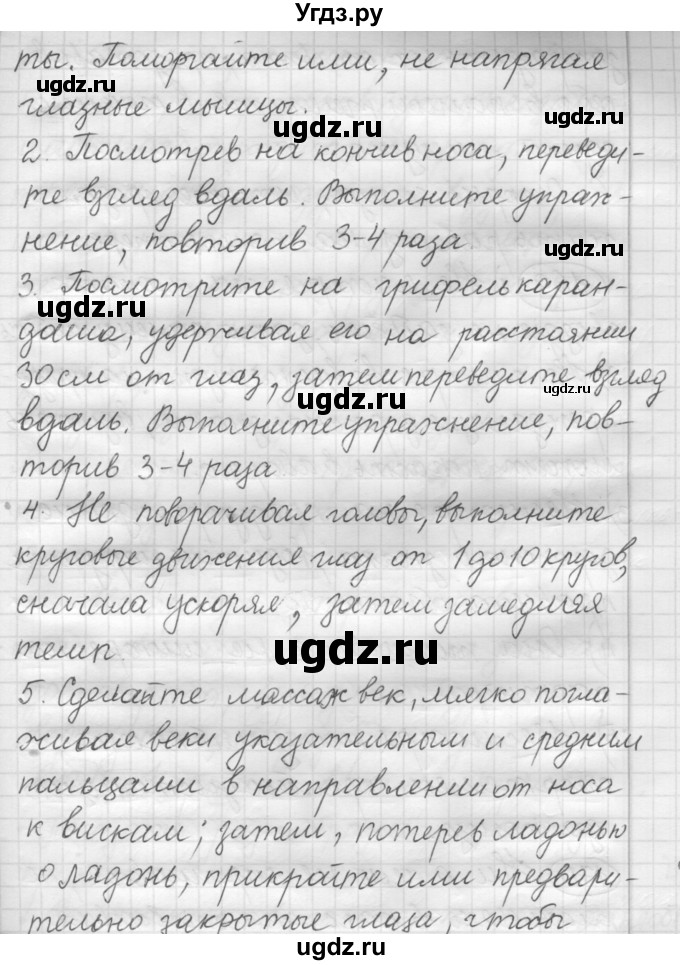 Угдз.ру
ты. Поморгайте ими, не напрягая
ugdz.ru
глазные мышцы.
ugdz.ru
2. Посмотрев на кончив носа, переведи-
те взгляд вдаль. Выполните упраж-
нение, повторив 3-4 раза
ugdz.ru
3. Посмотрите на грифель каран-
ugdz.ru
даша, удерживая его на расстоянии
30 см от глаз, затем переведите взгляд
ugdz.ru
ugdz.ru
вдаль. Выполните упражнение, пов-
торив 3-4 раза
4. Не поворачивая головы, выполните
круговые движения глаз от 1 до 10 кругов,
сначала ускоряя, затем замедляя
темп.
ugdz.ru
5. Сделайте массаж век, мягко погла-
живая веки указательным и средним
пальцами в направлении от носа
к вискам; затем, потерев ладонью
о ладонь, прикройте ими предвари-
тельно закрытые глаза, чтобы
ugdz.ru